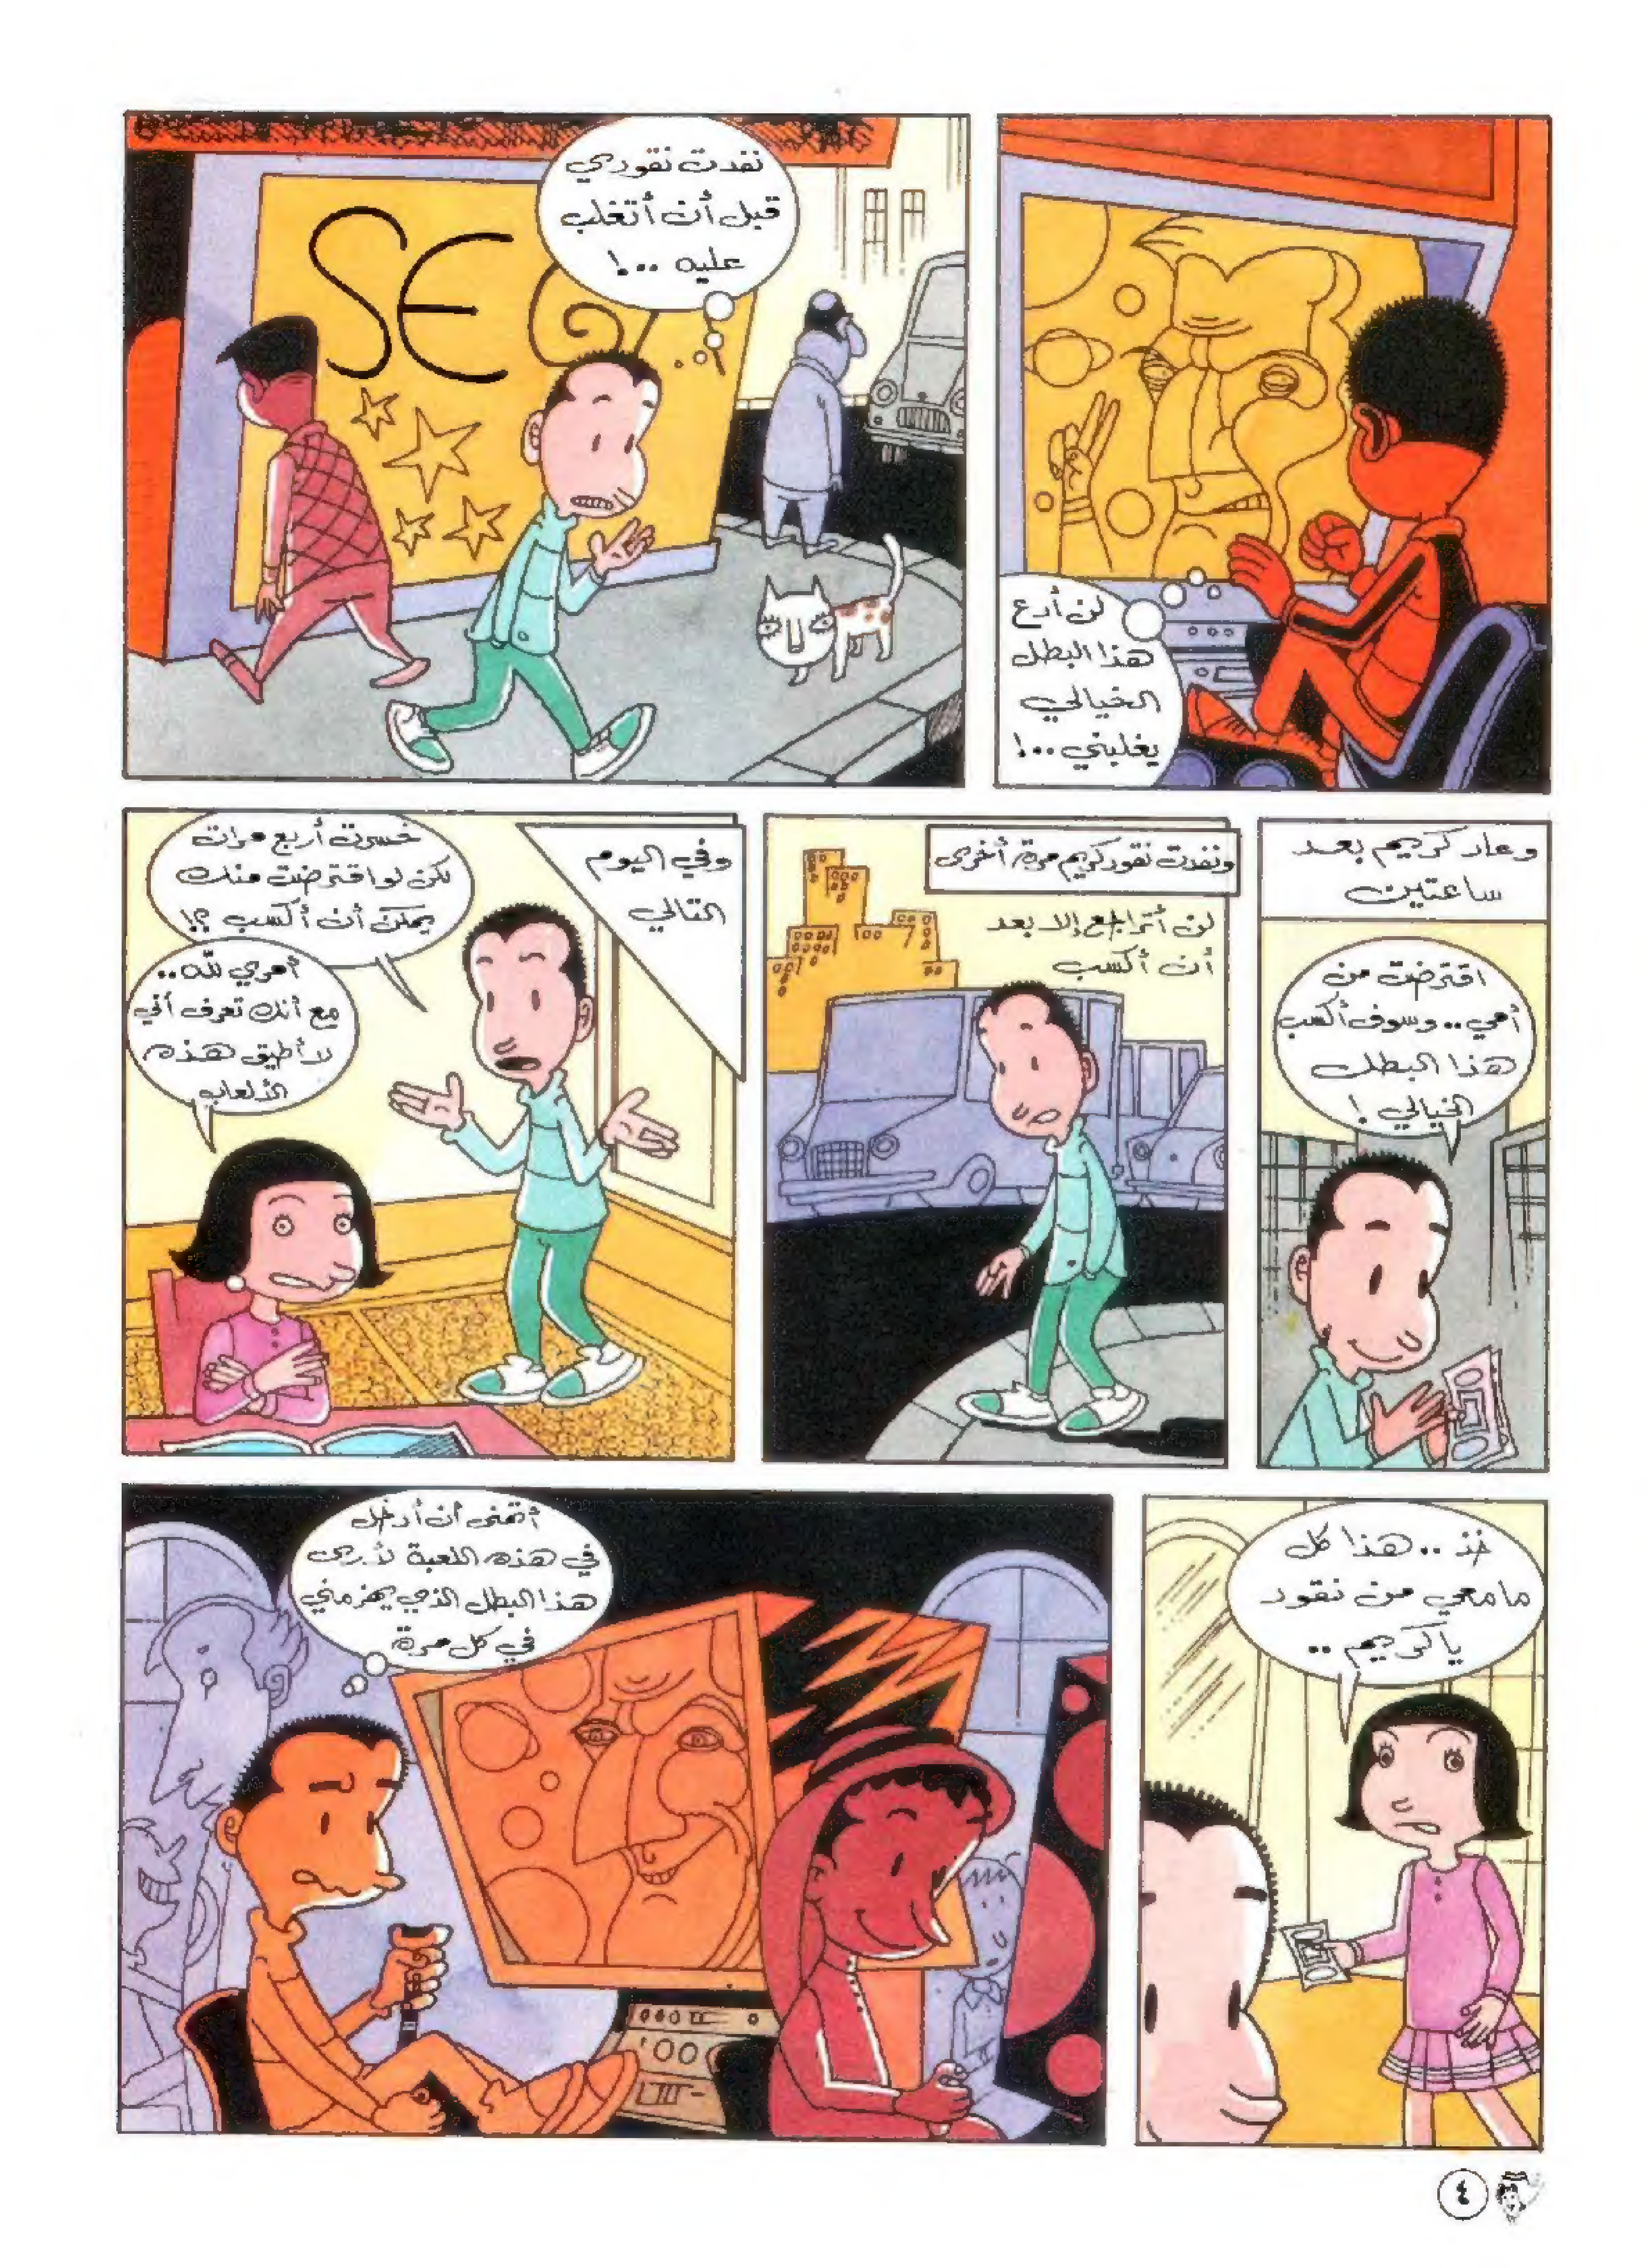 لن أدع
هذا البطل
الخيالي
يغلبني ..!
نفدت نقودي
قبل أن أتغلب
عليه ..!
SEG
وعاد كريم بعد
ساعتين
اقترضت من
أمي .. وسوف أكسب
هذا البطل
الخيالي !
ونفدت نقود كريم مرة أخرى
لن أتراجع إلا بعد
أن أكسب
وفي اليوم
التالي
خسرت أربع مرات
لكن لو اقترضت منك
يمكن أن أكسب ؟!
أمري لله ..
مع أنك تعرف أني
لا أطيق هذه
الألعاب
خذ .. هذا كل
مامعي من نقود
يا كريم ..
أتمنى أن أدخل
في هذه اللعبة لأرى
هذا البطل الذي يهزمني
في كل مرة
٤